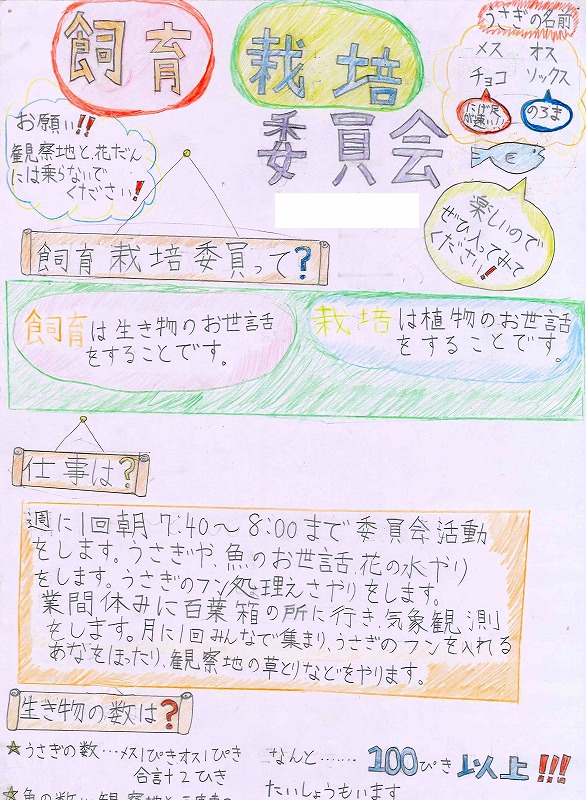 飼育 栽培
委員会
うさぎの名前
メス オス
チョコ ソックス
にげ足
が速い!!
のろま
お願い!!
観察地と、花だん
には乗らないで
ください!
楽しいので
ぜひ入ってみて
ください!
飼育栽培委員って?
飼育は生き物のお世話
をすることです。
栽培は植物のお世話
をすることです。
仕事は?
週に1回朝7:40～8:00まで委員会活動
をします。うさぎや、魚のお世話、花の水やり
をします。うさぎのフン処理えさやりをします。
業間休みに百葉箱の所に行き、気象観測
をします。月に1回みんなで集まり、うさぎのフンを入れる
あなをほったり、観察地の草とりなどをやります。
生き物の数は?
★うさぎの数…メス1ぴきオス1ぴき
合言十2ひき
なんと……100ぴき以上!!!
たいしょうもいます